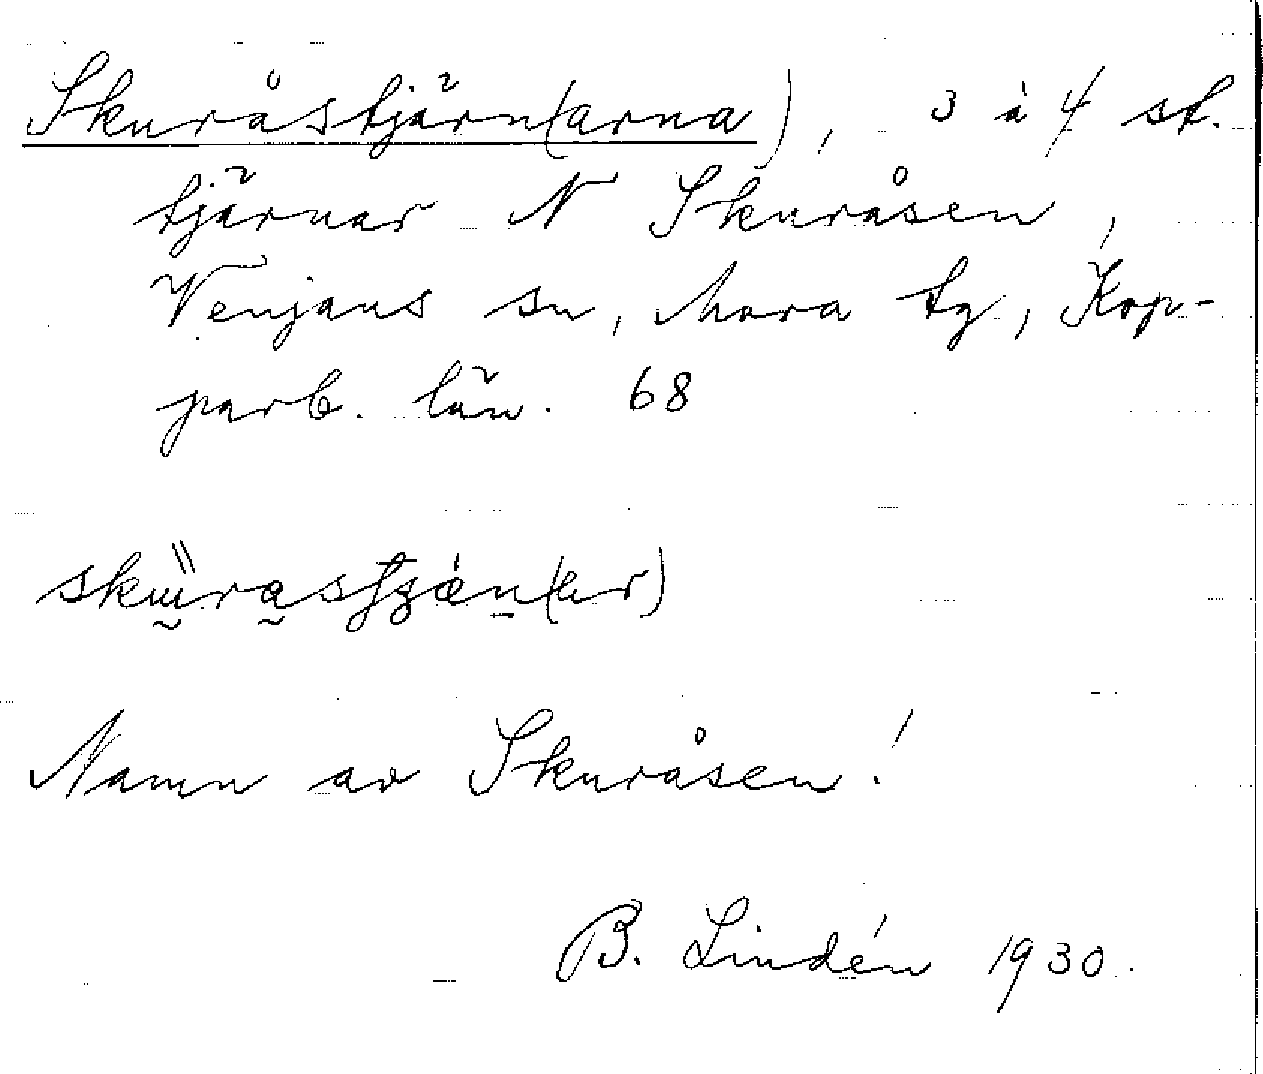 Skuråstjärn(arna), 3 à 4 st.
tjärnar N Skuråsen,
Venjans sn, Mora tg, Kop-
parb. län. 68
Namn av Skuråsen!
B. Lindén 1930.